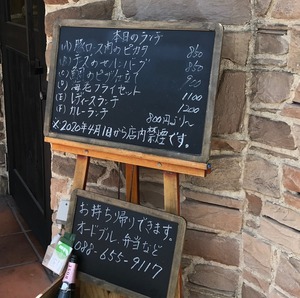 本日のランチ
(A) 豚ロース肉のピカタ 850
(B) チキのせハンバーグ 850
(C) のピザ仕立て 900
(D) 海老フライセット 1100
(E) レディースランチ 1200
(F) カレーランチ 800円より〜
※2020年4月1日から店内禁煙です。
お持ち帰りできます。
オードブル、弁当など
088-655-9117